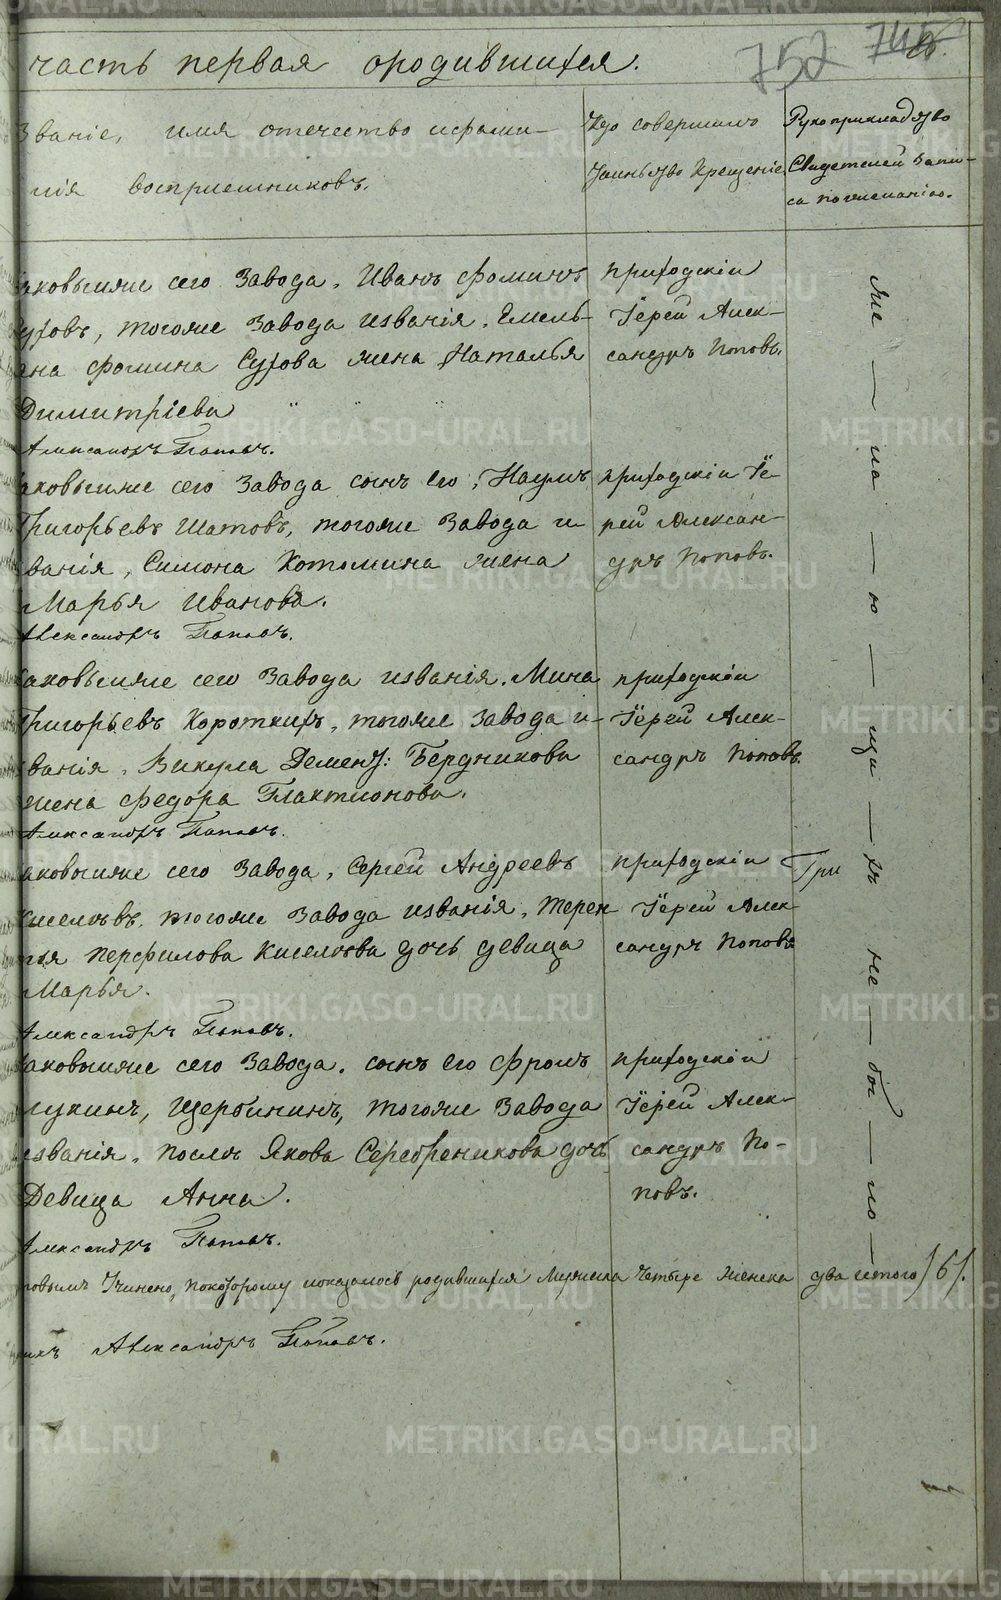 часть первая ородившихся.
752 745
Званіе, имя отечество ифами-
лія воспріемниковъ.
Кто совершилъ
Таинство Крещенія
Рукоприкладство
Свидетелей Запи-
си пожеланію.
аковыяже сего Завода, Иванъ Фоминъ
Суховъ, тогоже Завода изванія, Емель-
яна Фомина Сухова жена Наталья
Димитріева
Александръ Поповъ.
приходскіи
Іерей Алек-
сандръ Поповъ.
аковыяже сего Завода сынъ его, Наумъ
Григорьевъ Шатовъ, тогоже Завода и-
званія, Симона Котомина жена
Марья Иванова.
Александръ Поповъ.
приходскіи Іе-
рей Алексан-
дръ Поповъ.
аковыяже сего Завода изванія, Мина
Григорьевъ Короткихъ, тогоже Завода и-
званія, Викула Демент: Бердникова
жена Федора Глактионова.
Александръ Поповъ.
приходскіи
Іерей Алек-
сандръ Поповъ.
аковыяже сего Завода, Сергей Андреевъ
Киселевъ, тогоже Завода изванія, Терен
тья Перфилова Киселева дочь девица
Марья.
Александръ Поповъ.
приходскіи
Іерей Алек-
сандръ Поповъ
аковыяже сего Завода, сынъ его Фролъ
лукинъ, Щербининъ, тогоже Завода
изванія, после Якова Серебреникова дочь
Девица Анна.
Александръ Поповъ.
приходскіи
Іерей Алек-
сандръ По-
повъ.
же — ла — ю — ща — хъ не — бы — ло —
При
повымъ Учинено, покоторому показалось родившихся Мужеска четыре Женска два итого /6/.
Александръ Поповъ.
METRIKI.GASO-URAL.RU